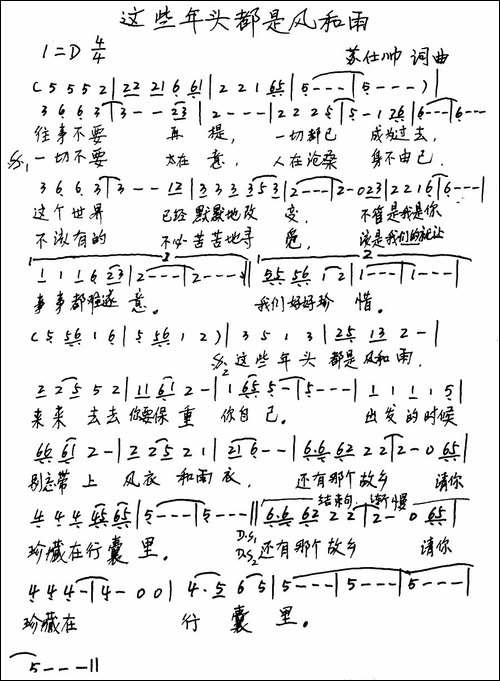 这些年头都是风和雨
1=D 4/4 苏仕帅 词曲
(5 5 5 2 | 22 21 6 61 | 2 2 1 65 | 5 - - - | 5 - - - ) |
3 6 6 3 | 3 - - 23 | 2 - - - | 2 2 2 5 | 5 - 1 76 | 6 - - - | 6 - - -
往事不要 再 提, 一切都已 成为过去,
𝄋1 一切不要 太在 意, 人在沧桑 身不由己.
3 6 6 3 | 3 - - 12 | 3 3 3 3 5 3 | 2 - - - | 2 - 0 23 | 2 2 1 6 | 6 - - - |
这个世界 已经默默地改 变, 不管是我是你
不该有的 不必苦苦地寻 觅, 该是我们的就让
1 2
1 1 1 6 23 | 2 - - - | 2 - - - :|| 55 56 1 2 | 1 - - - | 1 - - - |
事事都难逐 意。 我们好好珍 惜。
(5 56 1 6 | 5 56 1 2 ) | 3 5 1 3 | 25 13 2 - |
𝄋2 这些年头 都是风和雨.
2 2 5 5 2 | 11 61 2 - | 1 65 5 - | 5 - - - | 1 1 1 1 5 |
来来 去去你要保 重 你自己。 出发的时候
66 61 2 - | 2 2 5 2 1 | 21 6 - - | 6.6 62 2 2 | 2 - 0 65 |
别忘带 上 风衣 和雨衣, 还有那个故乡 请你
结束句 渐慢
4 4 4 45 65 | 5 - - - | 5 - - - || 6.6 62 2 2 | 2 - 0 65 |
珍藏在行囊 里。 D.S1 D.S2 还有那个故乡 请你
4 4 4 - | 4 - 0 0 | 4 . 5 6 5 | 5 - - - | 5 - - - | 5 - - - |
珍藏在 行 囊 里。
5 - - - ||